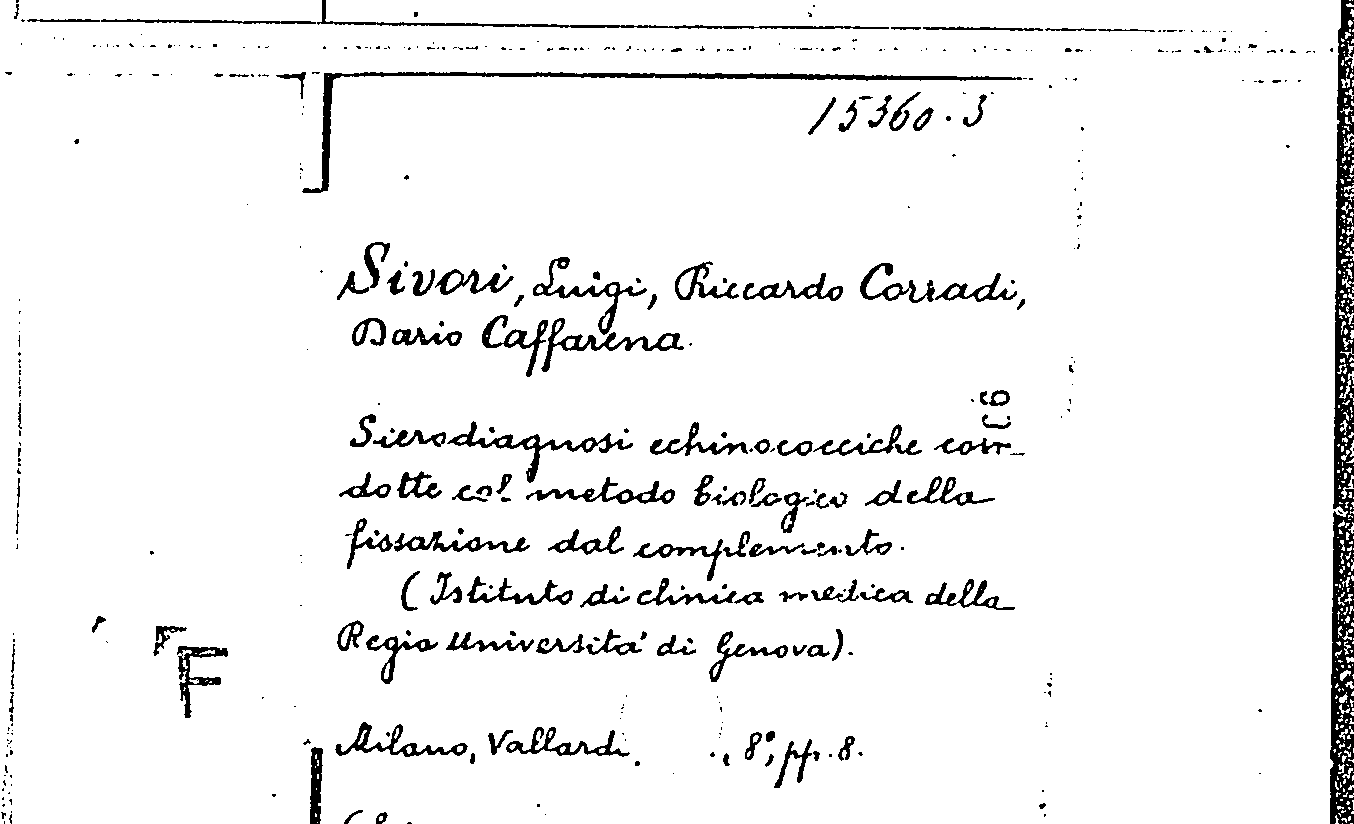 15360.3
Sivori, Luigi, Riccardo Corradi,
Dario Caffarena.
Sierodiagnosi echinococciche con-
dotte col metodo biologico della
fissazione dal complemento.
(Istituto di clinica medica della
Regia Università di Genova).
F
Milano, Vallardi. , 8°, pp. 8.